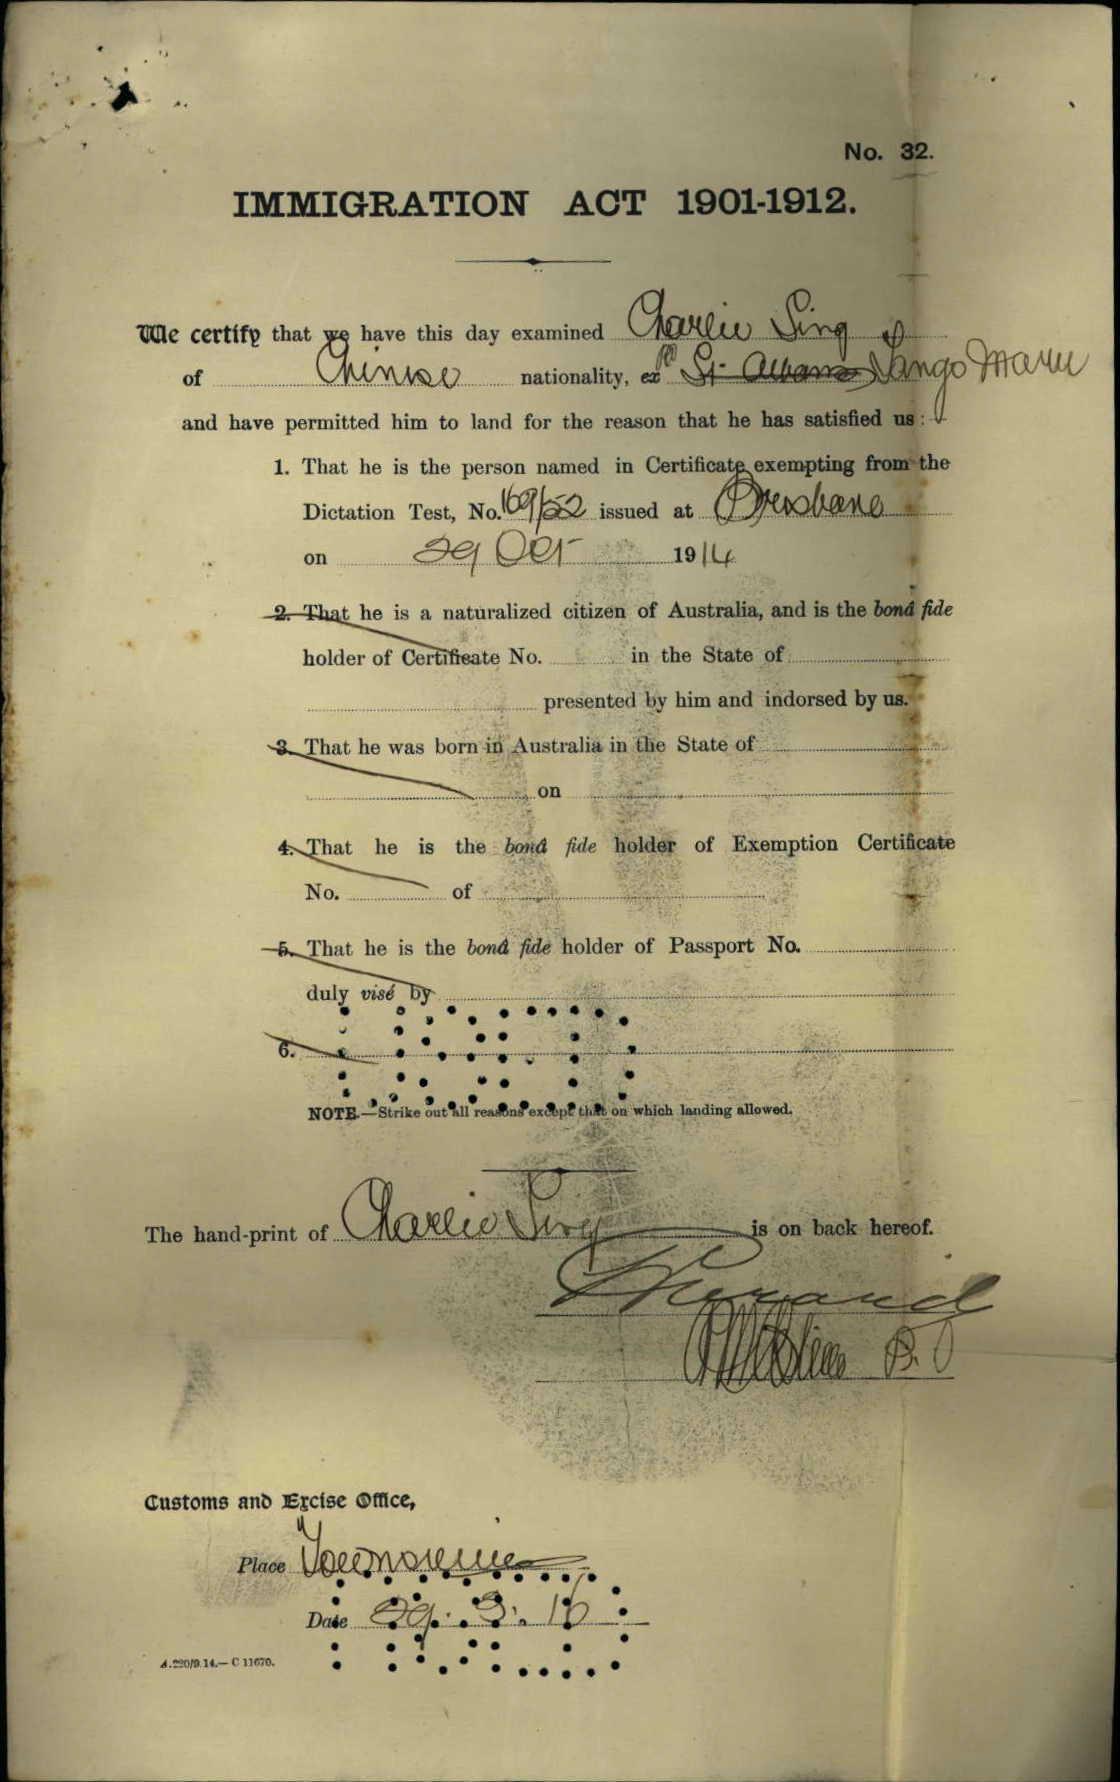 No. 32.
IMMIGRATION ACT 1901-1912.
We certify that we have this day examined Charlie Sing
of Chinese nationality, ex St. Albans Tango Maru
and have permitted him to land for the reason that he has satisfied us:
1. That he is the person named in Certificate exempting from the
Dictation Test, No. 169/52 issued at Brisbane
on 29 Oct 1914
2. That he is a naturalized citizen of Australia, and is the bonâ fide
holder of Certificate No. in the State of
presented by him and indorsed by us.
3. That he was born in Australia in the State of
on
4. That he is the bonâ fide holder of Exemption Certificate
No. of
5. That he is the bonâ fide holder of Passport No.
duly visé by
6.
NOTE.—Strike out all reasons except that on which landing allowed.
The hand-print of Charlie Sing is on back hereof.
Customs and Excise Office,
Place Townsville
Date 29. 3. 16
A.220/9.14.—C 11670.